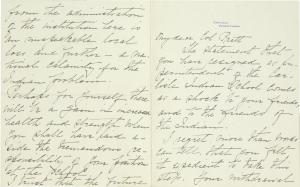 My dear Col Pratt
The statement that
you have resigned as su-
perintendent of the Car-
lisle Indian School comes
as a shock to your friends
and to the friends of
the Indian.
I regret more than words
can tell that you felt
it expedient to take this
step. Your withdrawal
from the administration
of the institution here is
an unspeakable local
loss and further a na-
tional calamity for the
Indian problem.
Perhaps for yourself there
will be a gain in increased
health and strength when
you shall have laid a-
side the tremendous re-
sponsibility of your position
at the
I trust that the future